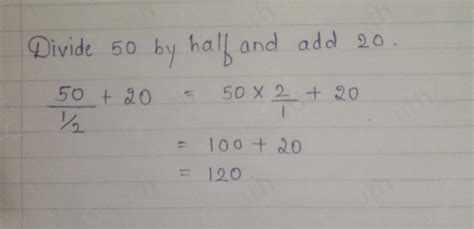 Divide 50 by half and add 20.
50/(1/2) + 20 = 50 × 2/1 + 20
= 100 + 20
= 120